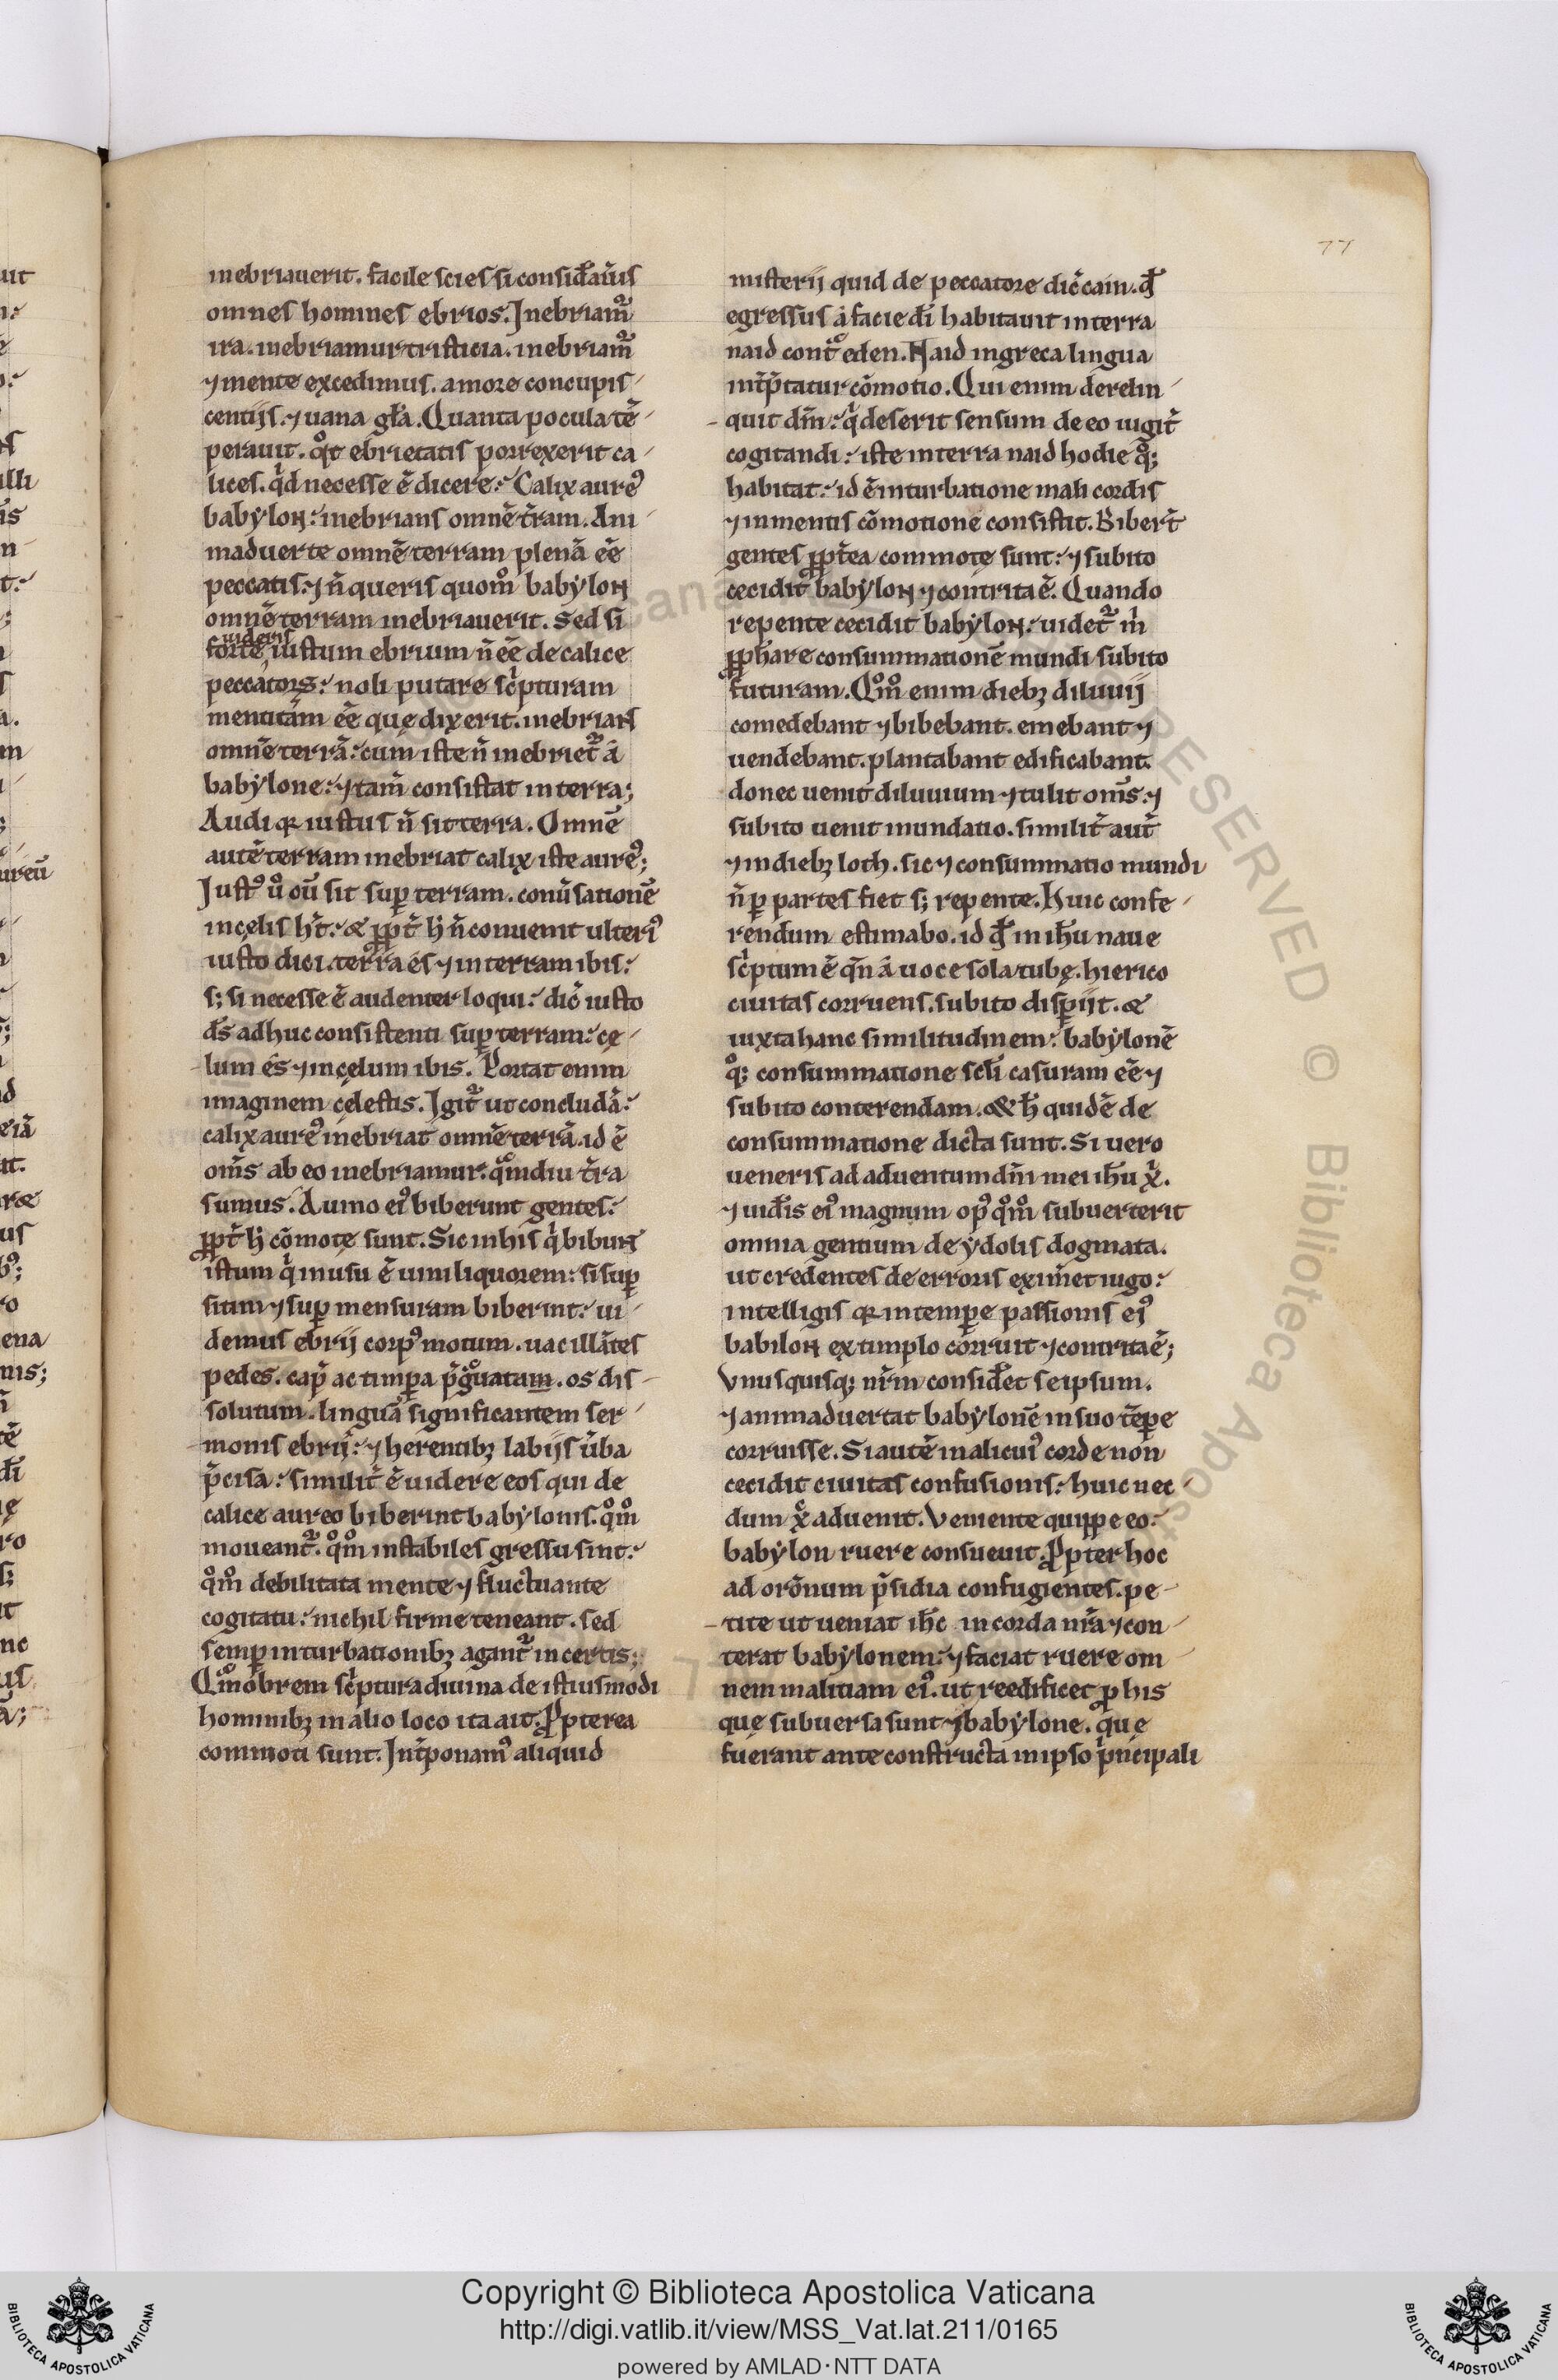 77
inebriauerit. facile scies si consid̄au̅is
omnes homines ebrios. Inebriam̅
ira. inebriamur tristicia. inebriam̅
⁊ mente excedimus. amore concupis
centijs. ⁊ uana gl̅a. Quanta pocula te̅
perauit. qͦt ebrietatis porrexerit ca
lices. qͥd necesse e̅ dicere. Calix aureꝰ
babẏlon. inebrians omne̅ t̅ram. Ani
maduerte omne̅ terram plena̅ ee̅
peccatis. ⁊ n̅ queris quom̊ babẏlon
omne̅ terram inebriauerit. Sed si
uideris
forte iustum ebrium n̅ ee̅ de calice
peccatorꝭ. noli putare scͥpturam
mentitam ee̅ quę dixerit. inebrians
omne̅ terra̅. cum iste n̅ inebriet̅ a
babẏlone. ⁊ tam̅ consistat in terra;
Audi qꝛ iustus n̅ sit terra. Omne̅
aute̅ terram inebriat calix iste aureꝰ;
Iustꝰ uͦ cu̅ sit suꝑ terram. conu̅satione̅
in cęlis h̅t. & ꝓpt̅ h̅ n̅ conuenit ulteriꝰ
iusto dici. terra es ⁊ in terram ibis.
s; si necesse e̅ audenter loqui. dic̅ iusto
d̅s adhuc consistenti suꝑ terram. cę
lum es ⁊ in cęlum ibis. Portat enim
imaginem cęlestis. Igit̅ ut concluda̅.
calix aureꝰ inebriat omne̅ terra̅. id e̅
om̅s ab eo inebriamur. qᵒmdiu t̅ra
sumus. A uino eiꝰ biberunt gentes.
ꝓpt̅ h̅ co̅motę sunt. Sic in his qͥ bibunt
istum qͥ in usu e̅ uini liquorem. si suꝑ
sitim ⁊ suꝑ mensuram biberint. ui
demus ebrij corpꝰ motum. uacilla̅tes
pedes. cap̅ ac timꝑa p̅gᵒuatum. os dis
solutum. lingua̅ significantem ser
monis ebrij. ⁊ herentibꝫ labijs u̅ba
p̅cisa. similit̅ e̅ uidere eos qui de
calice aureo biberint babẏlonis. qͦm̊
moueant̅. qͦm̊ instabiles gressu sint.
qͦm̊ debilitata mente ⁊ fluctuante
cogitatu. nichil firme teneant. sed
semꝑ in turbationibꝫ agant̅ incertis;
Qᵒmobrem scͥptura diuina de istiusmodi
hominibꝫ in alio loco ita ait. Ꝓpterea
commoti sunt. Int̅ponamꝰ aliquid
misterij quid de peccatore dic̅ cain. qd̅
egressus a facie d̅i habitauit in terra
naid contᵒ eden. Naid in greca lingua
int̅p̅tatur co̅motio. Qui enim derelin
quit dm̅. qͥ deserit sensum de eo iugit̅
cogitandi. iste in terra naid hodie qͦꝫ
habitat. id e̅ in turbatione mali cordis
⁊ in mentis co̅motione consistit. Bibert̅
gentes ꝓpt̅ea commotę sunt. ⁊ subito
cecidit babẏlon ⁊ contrita e̅. Quando
repente cecidit babẏlon. uidet̅ mͥ
ꝓph̅are consummatione̅ mundi subito
futuram. Qͦm̊ enim diebꝫ diluuij
comedebant ⁊ bibebant. emebant ⁊
uendebant. plantabant edificabant.
donec uenit diluuium ⁊ tulit om̅s. ⁊
subito uenit inundatio. similit̅ aut̅
⁊ in diebꝫ loth. sic ⁊ consummatio mundi
n̅ ꝑ partes fiet s; repente. Huic confe
rendum estimabo. id qd̅ in ih̅u naue
scͥptum e̅ qn̅ a uoce sola tubę. hierico
ciuitas corruens. subito disꝑijt. &
iuxta hanc similitudinem. babẏlone̅
qͦꝫ consummatione sc̅li casuram ee̅ ⁊
subito conterendam. & h̅ quide̅ de
consummatione dicta sunt. Si uero
ueneris ad aduentum dn̅i mei ih̅u x̅.
⁊ uid̅is eiꝰ magnum opꝰ qͦm̊ subuerterit
omnia gentium de ẏdolis dogmata.
ut credentes de erroris eximet iugo.
intelligis qꝛ in temꝑe passionis eiꝰ
babilon extimplo corruit ⁊ contrita e̅;
Vnusquisqꝫ nr̅m consid̅et seipsum.
⁊ animaduertat babẏlone̅ in suo te̅ꝑe
corruisse. Si aute̅ in alicuiꝰ corde non
cecidit ciuitas confusionis. huic nec
dum x̅ aduenit. Veniente quippe eo.
babẏlon ruere consueuit. Ꝓpter hoc
ad oro̅num p̅sidia confugientes. pe
tite ut ueniat ih̅c in corda nr̅a ⁊ con
terat babẏlonem. ⁊ faciat ruere om
nem malitiam eiꝰ. ut reedificet ꝓ his
quę subuersa sunt ⁊ babẏlone. quę
fuerant ante constructa in ipso pͥncipali
Copyright © Biblioteca Apostolica Vaticana
http://digi.vatlib.it/view/MSS_Vat.lat.211/0165
powered by AMLAD·NTT DATA
BIBLIOTECA APOSTOLICA VATICANA
BIBLIOTECA APOSTOLICA VATICANA